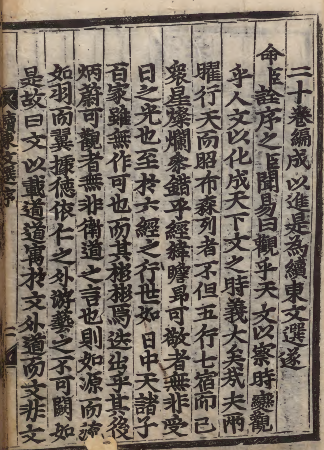 二十卷編成以進是爲續東文選遂
命臣詮序之臣聞易曰觀乎天文以察時變觀
乎人文以化成天下文之時義大矣哉夫兩
曜行天而昭布森列者不但五行七宿而已
衆星燦爛參錯乎經緯躔昴可敬者無非受
日之光也至於六經之行世如日中天諸子
百家雖無作可也而其彬彬焉迭出乎其後
炳蔚可觀者無非衛道之言也則如源而沛
如羽而翼據德依仁之外游藝之不可闕如
是故曰文以載道道寓於文外道而文非文
續東文選序
二